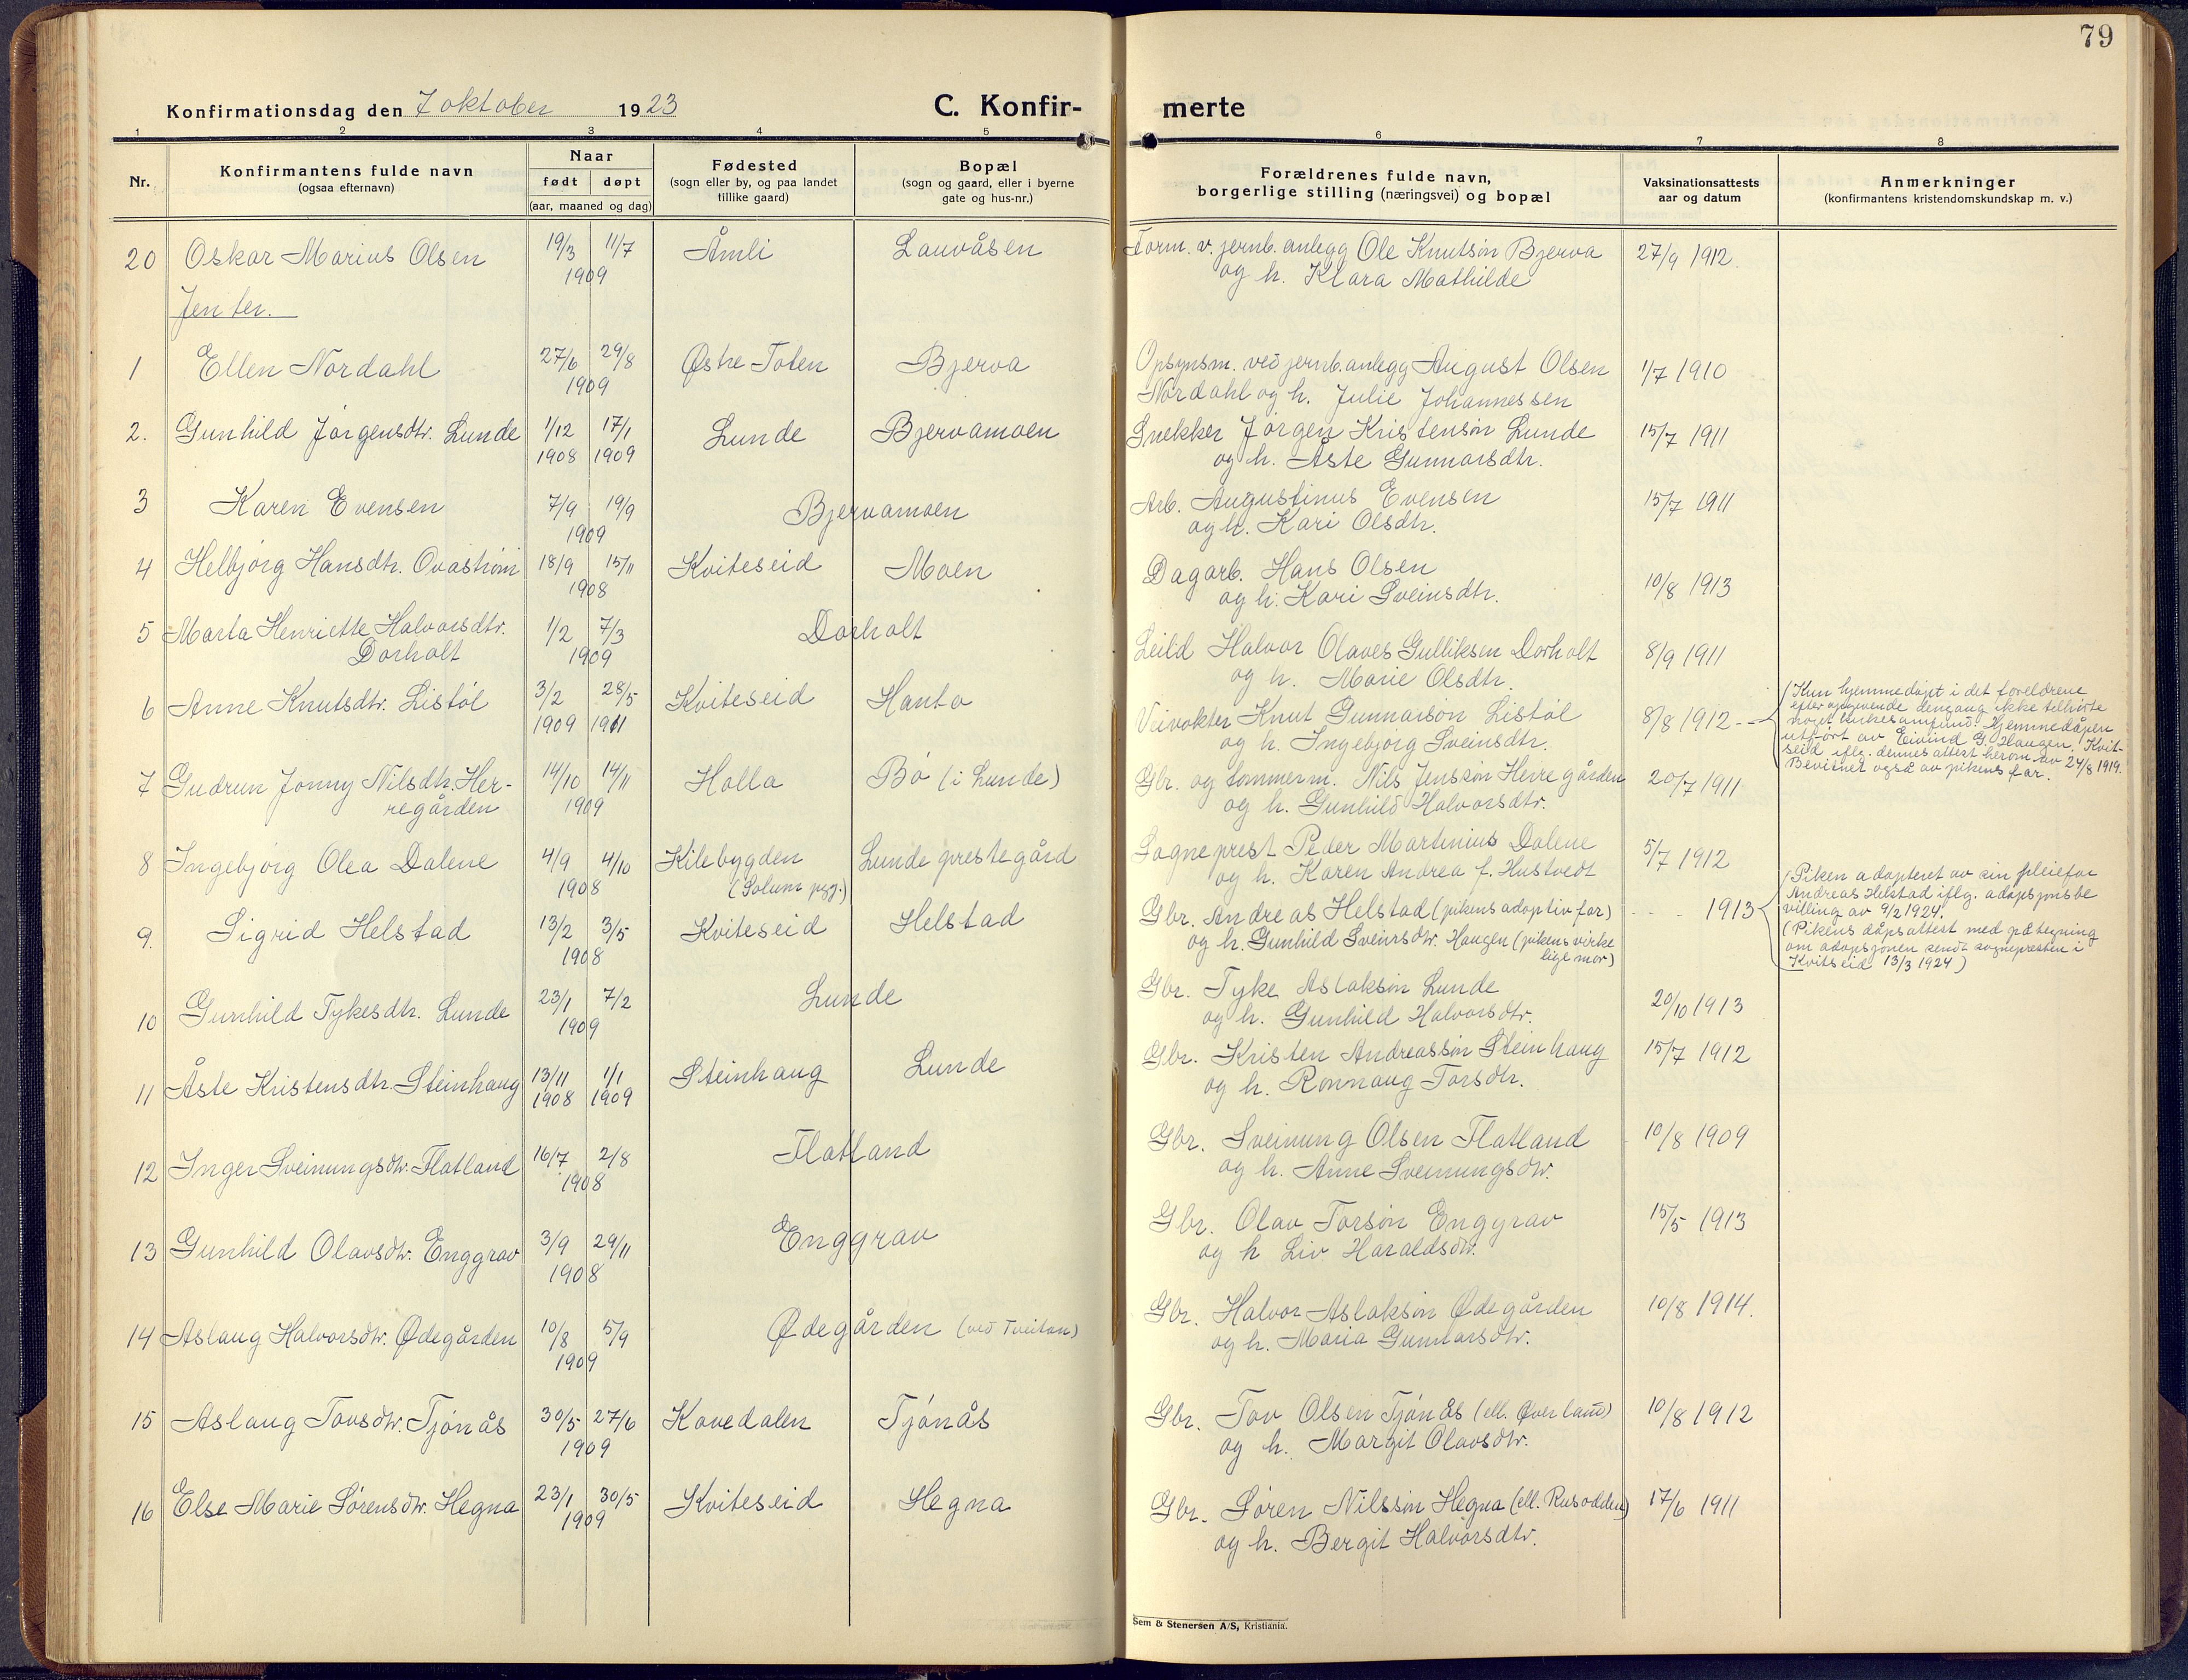 79
Konfirmationsdag den 7 oktober 1923
C. Konfir-
merte
1 2 3 4 5 6 7 8
Nr.
Konfirmantens fulde navn
(ogsaa efternavn)
Naar
født døpt
(aar, maaned og dag)
Fødested
(sogn eller by, og paa landet
tillike gaard)
Bopæl
(sogn og gaard, eller i byerne
gate og hus-nr.)
Forældrenes fulde navn,
borgerlige stilling (næringsvei) og bopæl
Vaksinationsattests
aar og datum
Anmerkninger
(konfirmantens kristendomskundskap m. v.)
20 Oskar Marius Olsen 19/3 11/7 Åmli Lauvåsen Form. v. jernb. anlegg Ole Knutsøn Bjerva 27/9 1912.
1909 og h. Klara Mathilde
Jenter.
1 Ellen Nordahl 27/6 29/8 Østre Toten Bjerva Opsynsm. ved jernb. anlegg August Olsen 1/7 1910
1909 Nordahl og h. Julie Johannessen
2. Gunhild Jørgensdtr. Lunde 1/12 17/1 Lunde Bjervamoen Snekker Jørgen Kristensøn Lunde 15/7 1911
1908 1909 og h. Åste Gunnarsdtr.
3 Karen Evensen 7/9 19/9 Bjervamoen Arb. Augustinus Evensen 15/7 1911
1909 og h. Kari Olsdtr.
4 Helbjørg Hansdtr. Ovastrøm 18/9 15/11 Kviteseid Moen Dagarb. Hans Olsen 10/8 1913
1908 og h. Kari Sveinsdtr.
5 Marta Henriette Halvorsdtr. 1/2 7/3 Dorholt Leild Halvor Olaves Gulliksen Dorholt 8/9 1911
Dorholt 1909 og h. Marie Olsdtr.
6 Anne Knutsdtr. Listøl 3/2 28/5 Kviteseid Hanto Veivokter Knut Gunnarsøn Listøl 8/8 1912 --
1909 1911 og h. Ingebjørg Sveinsdtr.
(Kun hjemmedøpt i det foreldrene
efter opgivende dengang ikke tilhørte
noget kirkesamfund. Hjemmedåpen
utført av Eivind G. Haugen, Kvit-
seid iflg. dennes attest herom av 24/8 1919.
Bevisnet også av pikens far.
7 Gudrun Jonny Nilsdtr. Her- 14/10 14/11 Holla Bø (i Lunde) Gbr. og tømmerm. Nils Jenssøn Herregården 20/7 1911
regården 1909 og h. Gunhild Halvorsdtr.
8 Ingebjørg Olea Dalene 4/9 4/10 Kilebygden Lunde prestegård Sogneprest Peder Martinius Dalene 5/7 1912
1908 (Solum pgj.) og h. Karen Andrea f. Hustvedt
9. Sigrid Helstad 13/2 3/5 Kviteseid Helstad Gbr. Andreas Helstad (pikens adoptivfar) - - - 1913
1908 og h. Gunhild Sveinsdtr. Haugen (pikens virke
lige mor)
(Piken adopteret av sin pleiefar
Andreas Helstad iflg. adopsjonsbe
villing av 9/2 1924.
(Pikens dåpsattest med påtegning
om adopsjonen sendt sognepresten i
Kvitseid 13/3 1924)
10 Gunhild Tykesdtr. Lunde 23/1 7/2 Lunde Gbr. Tyke Aslaksøn Lunde 20/10 1913
1909 og h. Gunhild Halvorsdtr.
11 Åste Kristensdtr. Steinhaug 13/11 1/1 Steinhaug Lunde Gbr. Kristen Andreassøn Steinhaug 15/7 1912
1908 1909 og h. Rønnaug Torsdtr.
12 Inger Sveinungsdtr. Flatland 16/7 2/8 Flatland Gbr. Sveinung Olsen Flatland 10/8 1909
1908 og h. Anne Sveinungsdtr.
13 Gunhild Olavsdtr. Enggrav 3/9 29/11 Enggrav Gbr. Olav Torsøn Enggrav 15/5 1913
1908 og h Liv Haraldsdtr.
14 Aslaug Halvorsdtr. Ødegården 10/8 5/9 Ødegården (ved Tveitan) Gbr. Halvor Aslaksøn Ødegården 10/8 1914.
1909 og h. Maria Gunnarsdtr.
15 Aslaug Tovsdtr. Tjønås 30/5 27/6 Kovedalen Tjønås Gbr. Tov Olsen Tjønås (ell. Øverland) 10/8 1912
1909 og h. Margit Olavsdtr.
16 Else Marie Sørensdtr. Hegna 23/1 30/5 Kviteseid Hegna Gbr. Søren Nilssøn Hegna (ell. Rusodden) 17/6 1911
1909 og h. Bergit Halvorsdtr.
Sem & Stenersen A/S, Kristiania.